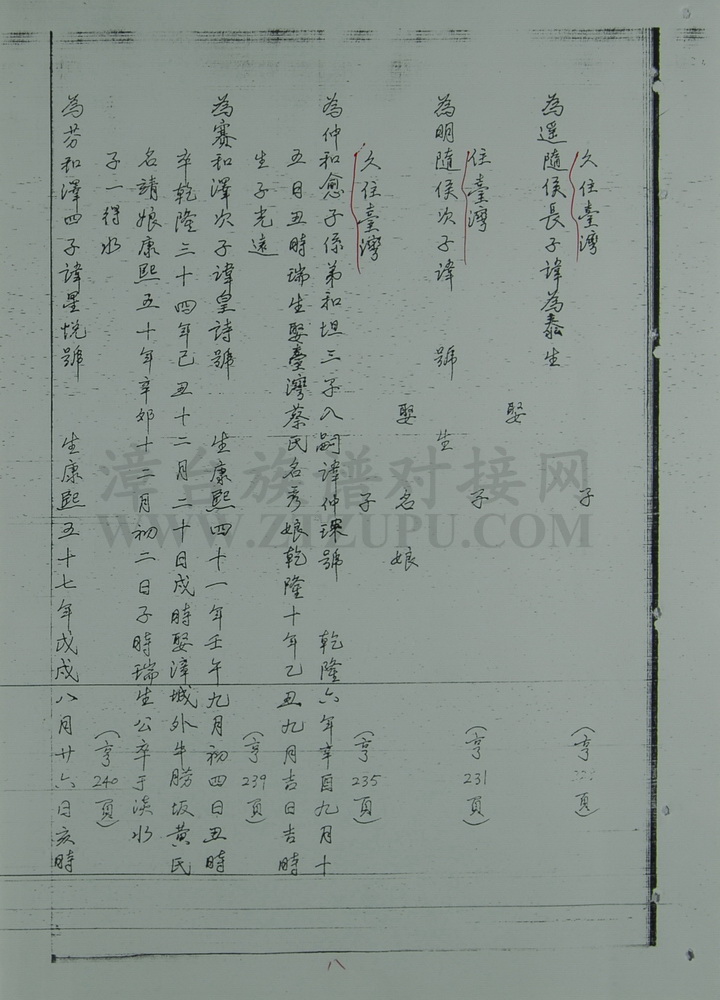 為遥隨侯長子諱為泰生
娶
久住臺灣 子 （亨 頁）
為明隨侯次子諱 號 生
娶 名 娘
住臺灣 子 （亨231頁）
久住臺灣 子 （亨235頁）
為仲和愈子係弟和坦三子入嗣諱仲琛號 乾隆六年辛酉九月十
五日丑時瑞生娶臺灣蔡氏名秀娘乾隆十年乙丑九月吉日吉時
生子光遠 （亨239頁）
為賽和澤次子諱皇詩號 生康熙四十一年壬午九月初四日丑時
卒乾隆三十四年己丑十二月二十日戌時娶漳城外牛朥坂黄氏
名請娘康熙五十年辛卯十二月初二日子時瑞生公卒于淡水
子一得水 （亨240頁）
為芬和澤四子諱星悅號 生康熙五十七年戊戌八月廿六日亥時
八
漳台族谱对接网
WWW.ZTZUPU.COM